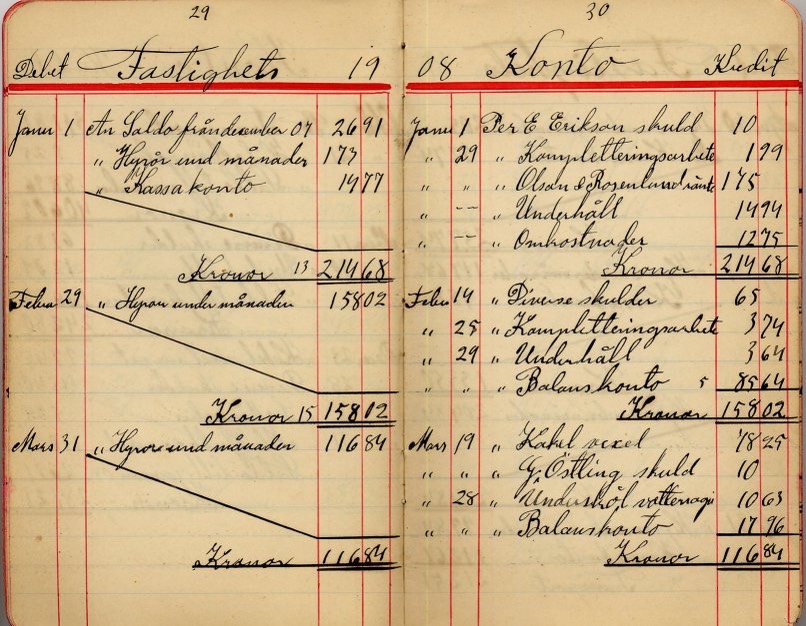 29
Debet Fastighets 19
Janu 1 An Saldo från december 07 26 91
" Hyror und månader 173
" Kassakonto 14 77
Kronor 13 214 68
Febru 29 " Hyror under månaden 158 02
Kronor 15 158 02
Mars 31 " Hyror und månader 116 84
Kronor 116 84
30
08 Konto Kredit
Janu 1 Per E Erikson skuld 10
" 29 " Kompletteringsarbete 1 99
" " " Olson & Rosenlund ränte 175
" -- " Underhåll 14 94
" -- " Omkostnader 12 75
Kronor 214 68
Febru 14 " Diverse skulder 65
" 25 " Kompletteringsarbete 3 74
" 29 " Underhåll 3 64
" " " Balanskonto 5 85 64
Kronor 158 02
Mars 19 " Kakel vexel 78 25
" " " G. Östling skuld 10
" 28 " 10 63
" " " Balanskonto 17 96
Kronor 116 84